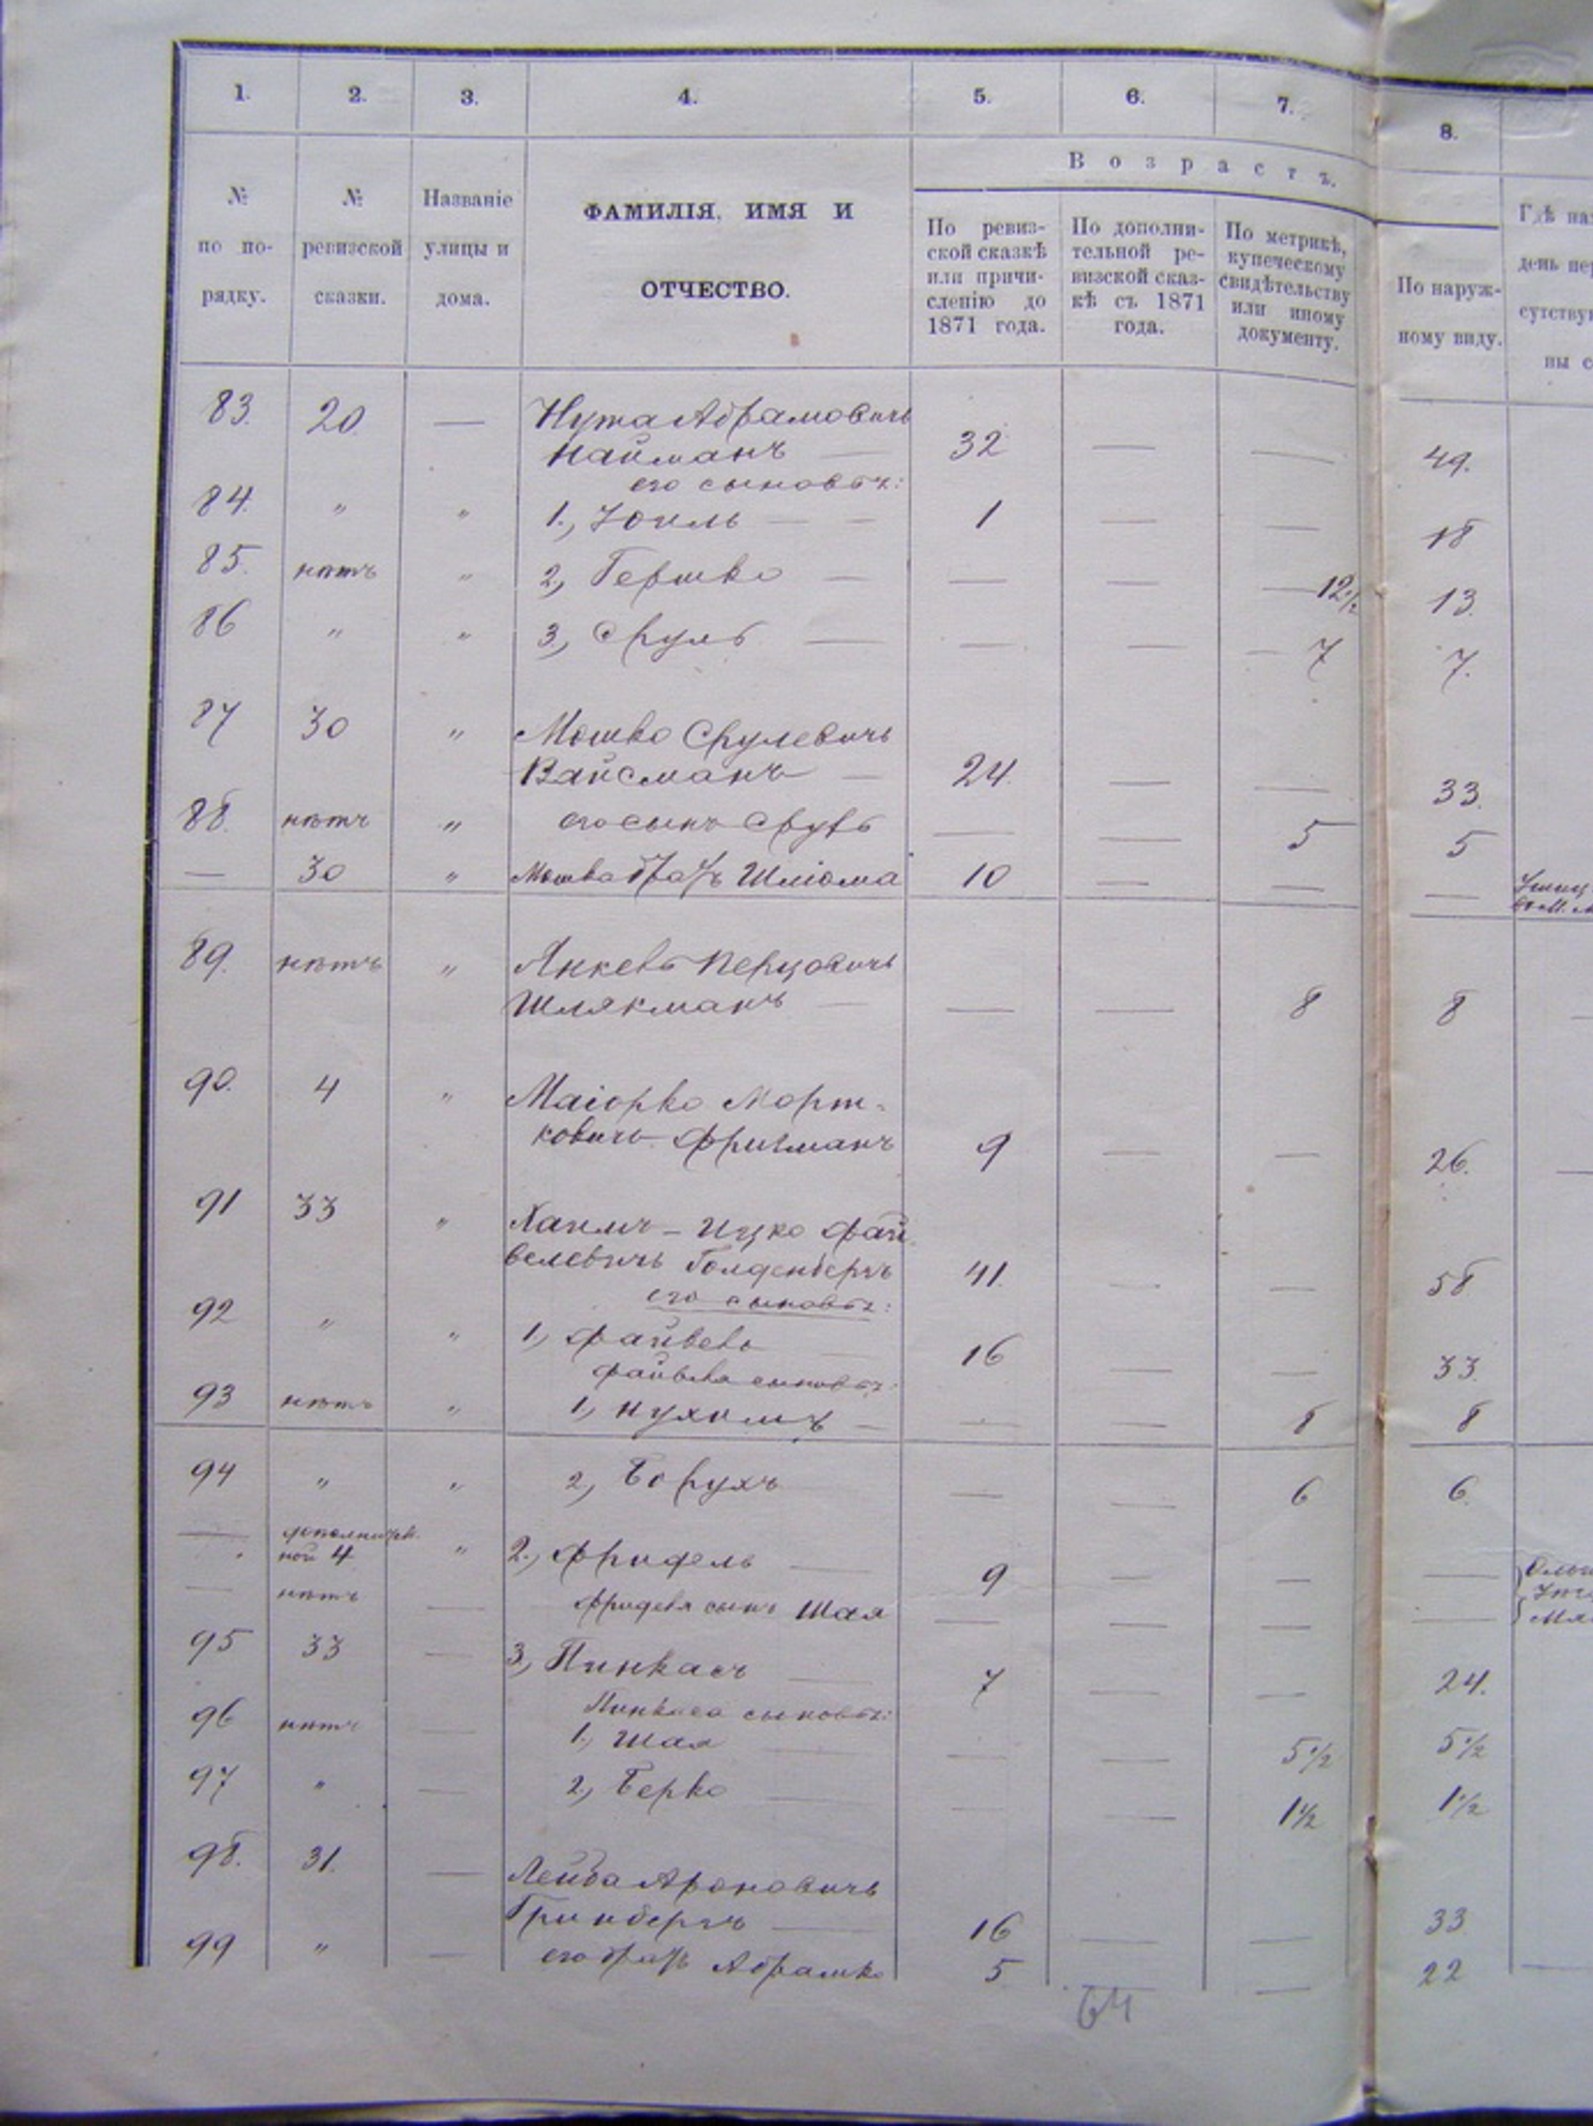 1. 2. 3. 4. 5. 6. 7. 8.
Возрастъ.
№ по порядку.
№ ревизской сказки.
Названіе улицы и дома.
ФАМИЛІЯ, ИМЯ И
ОТЧЕСТВО.
По ревиз-
ской сказкѣ
или причи-
сленію до
1871 года.
По дополни-
тельной ре-
визской сказ-
кѣ съ 1871
года.
По метрикѣ,
купеческому
свидѣтельству
или иному
документу.
По наруж-
ному виду.
Гдѣ
день
83. 20. — Нута Абрамовичъ
Найманъ — 32 — — 49.
его сыновья:
84. " " 1., Іоиль — — 1 — — 18
85. нѣтъ " 2, Гершко — — — — 12 1/2 13.
86 " " 3, Сруль — — — — 7 7.
87 30 " Мошко Срулевичъ
Вайсманъ — 24. — — 33.
88. нѣтъ " его сынъ Сруль — — 5 5
— 30 " Мошка братъ Шліома 10 — — —
89. нѣтъ " Янкель Перцовичъ
Шлякманъ — — — 8 8
90. 4 " Маіорко Морт-
ковичъ Фришманъ 9 — — 26.
91 33 " Хаимъ-Ицко Фай-
велевичъ Голденбергъ 41. — — 58
его сыновья:
92 " " 1, Файвель — 16 — — 33.
Файвеля сыновья:
93 нѣтъ " 1, Нухимъ — — — 8 8
94 " " 2, Борухъ — — 6 6.
— дополнител.
ной 4 " 2., Фридель — 9 — — —
— нѣтъ — Фриделя сынъ Шая — — — —
95 33 — 3, Пинкасъ — 7 — — 24.
Пинкаса сыновья:
96 нѣтъ — 1., Шая — — — 5 1/2 5 1/2
97 " — 2., Берко — — — 1 1/2 1 1/2
98. 31. — Лейба Ароновичъ
Гринбергъ — 16 — — 33
99 " — его братъ Абрамко 5 — 22
64